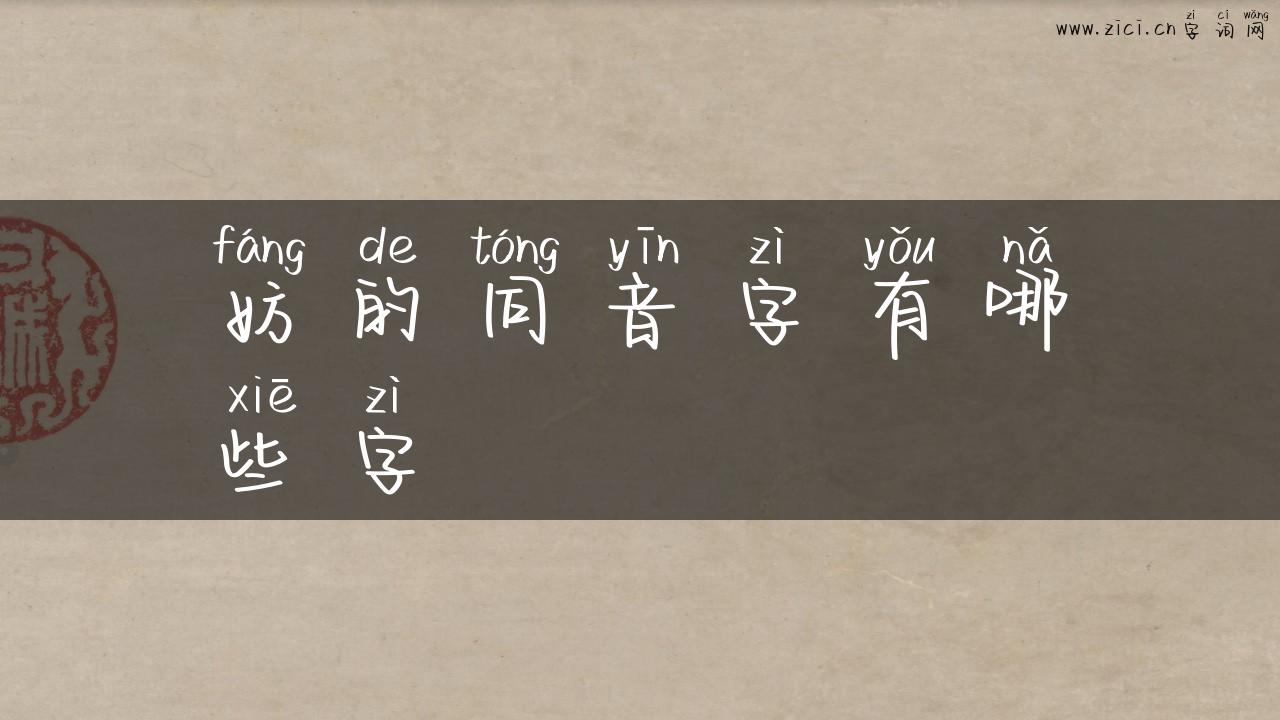 zì cí wǎng
www.zici.cn字词网
fáng de tóng yīn zì yǒu nǎ
妨的同音字有哪
xiē zì
些字